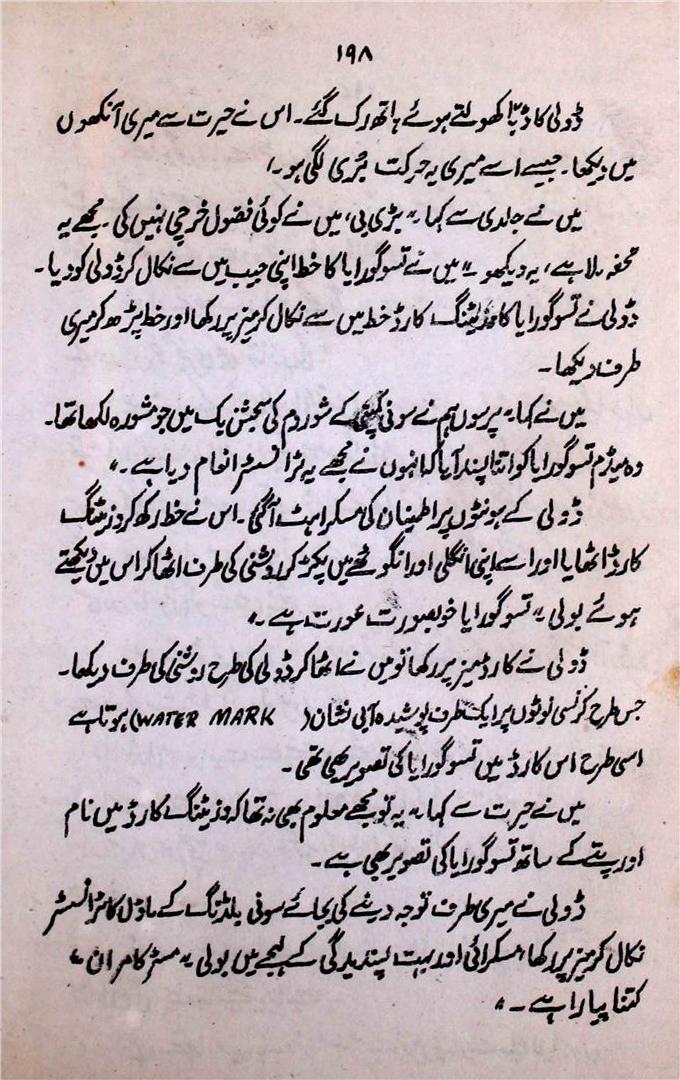 ۱۹۸
ڈولی کا ڈبّا کھولتے ہوئے ہاتھ رک گئے۔ اس نے حیرت سے میری آنکھوں
میں دیکھا۔ جیسے اسے میری یہ حرکت بُری لگی ہو۔،
میں نے جلدی سے کہا۔ "بڑی بی، میں نے کوئی فضول خرچی نہیں کی۔ مجھے یہ
تحفہ ملا ہے، یہ دیکھو۔" میں نے تسوگورایا کا خط اپنی جیب میں سے نکال کر ڈولی کو دیا۔
ڈولی نے تسوگورایا کا وزیٹنگ کارڈ خط میں سے نکال کر میز پر رکھا اور خط پڑھ کر میری
طرف دیکھا۔
میں نے کہا۔ "پرسوں ہم نے سونی کمپنی کے شوروم کی سجیشن بک میں جو مشورہ لکھا تھا۔
وہ میڈم تسوگورایا کو اتنا پسند آیا کہ انہوں نے مجھے یہ ٹرانسسٹر انعام دیا ہے۔"
ڈولی کے ہونٹوں پر اطمینان کی مسکراہٹ آگئی۔ اس نے خط رکھ کر وزیٹنگ
کارڈ اٹھایا اور اسے اپنی انگلی اور انگوٹھے میں پکڑ کر روشنی کی طرف اٹھا کر اس میں دیکھتے
ہوئے بولی "تسوگورایا خوبصورت عورت ہے۔"
ڈولی نے کارڈ میز پر رکھا تو میں نے اٹھا کر ڈولی کی طرح روشنی کی طرف دیکھا۔
جس طرح کرنسی نوٹوں پر ایک طرف پوشیدہ آبی نشان (WATER MARK) ہوتا ہے
اسی طرح اس کارڈ میں تسوگورایا کی تصویر بھی تھی۔
میں نے حیرت سے کہا۔ "یہ تو مجھے معلوم بھی نہ تھا کہ وزیٹنگ کارڈ میں نام
اور پتے کے ساتھ تسوگورایا کی تصویر بھی ہے۔
ڈولی نے میری طرف توجہ دینے کی بجائے سونی بلڈنگ کے ماڈل کا ٹرانسسٹر
نکال کر میز پر رکھا، مسکرائی اور بہت پسندیدگی کے لہجے میں بولی "مسٹر کامران،
کتنا پیارا ہے۔"